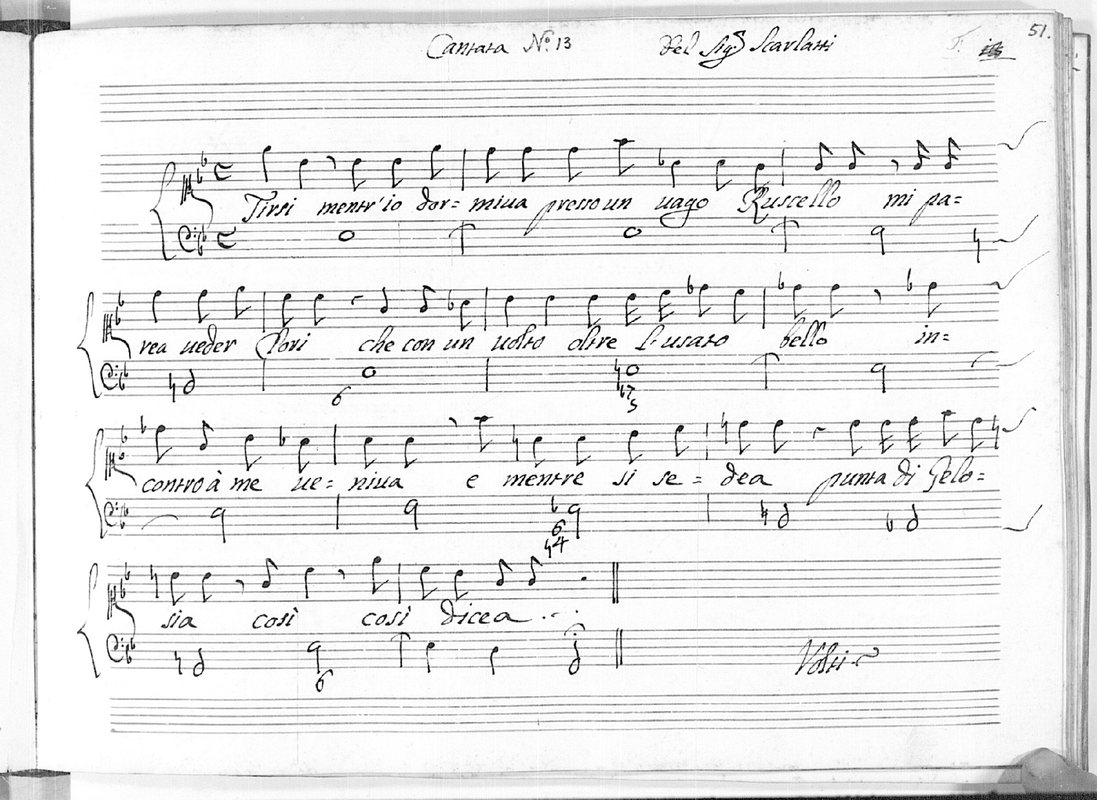 Cantata Nº. 13 del Sigr. Scarlatti 51.
Tirsi mentr'io dor= miua presso un uago Ruscello mi pa=
rea ueder Clori che con un uolto oltre l'usato bello in=
contro à me ue= niua e mentre si se= dea punta di Gelo=
sia così così dicea
Volti